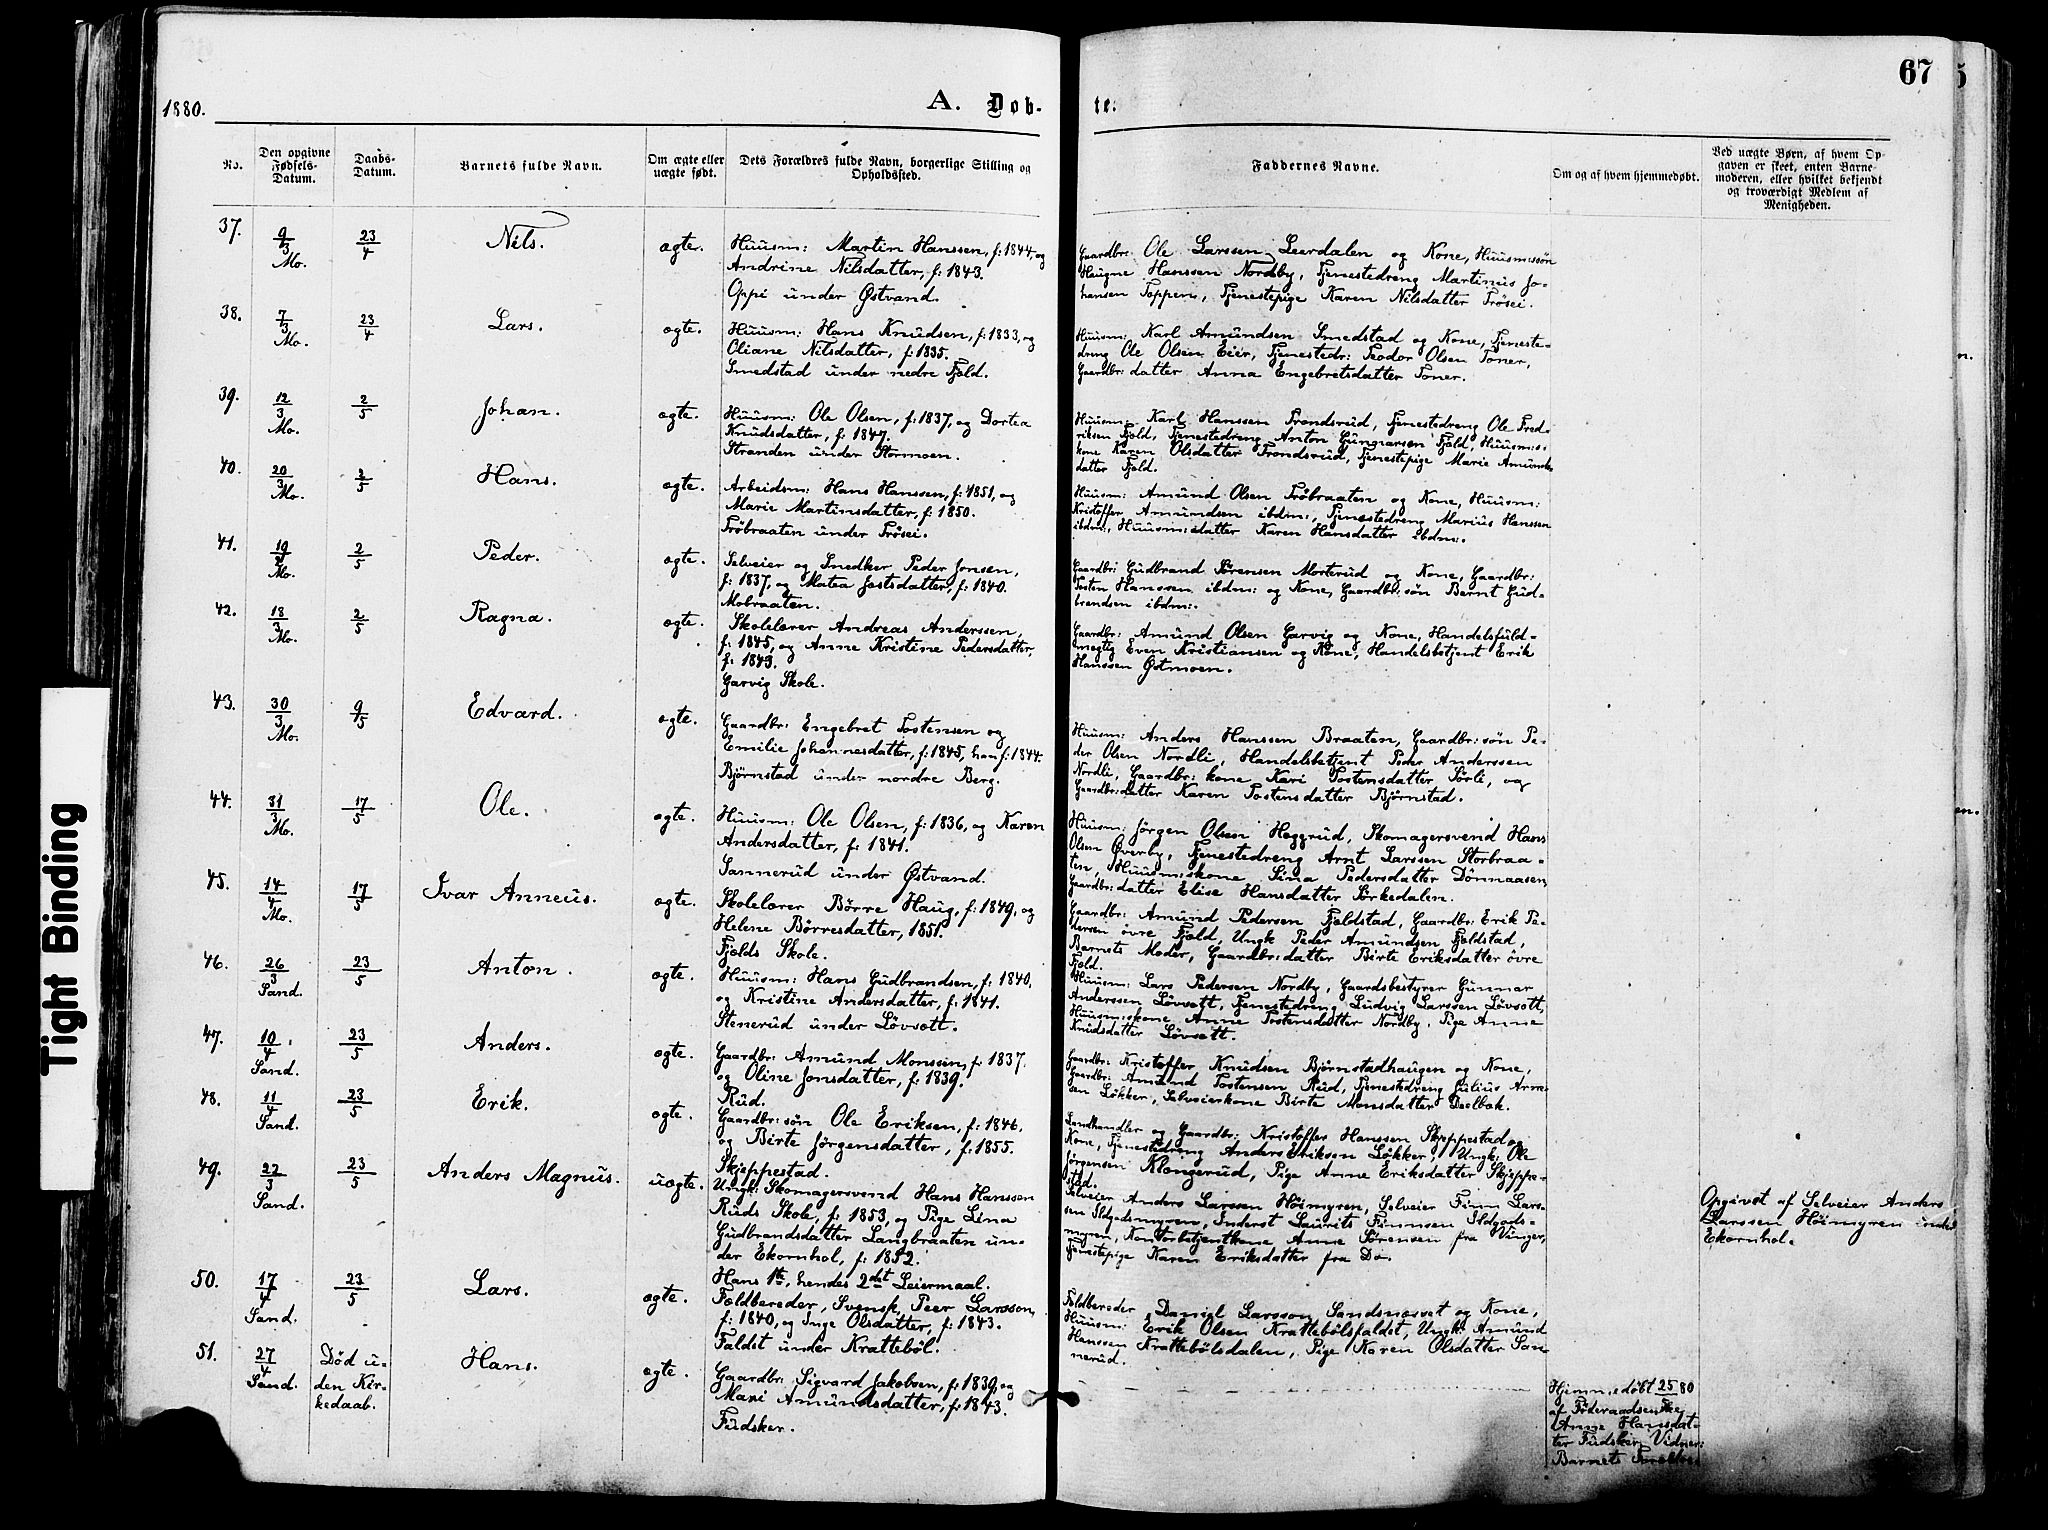 67
1880.
A. Døb-
te.
No.
Den opgivne Fødsels-Datum.
Daabs-Datum.
Barnets fulde Navn.
Om ægte eller uægte født.
Dets Forældres fulde Navn, borgerlige Stilling og Opholdssted.
Faddernes Navne.
Om og af hvem hjemmedøbt.
Ved uægte Børn, af hvem Opgaven er skeet, enten Barnemoderen, eller hvilket bekjendt og troværdigt Medlem af Menigheden.
37. 9/3 Mo. 23/4 Nils. ægte.
Huusm: Martin Hanssen, f: 1844, og
Andrine Nilsdatter, f: 1843.
Oppi under Østvand.
Gaardbr: Ole Larssen Leerdalen og Kone, Huusm:søn
Haugne Hanssen Nordby, Tjenestedreng Martinus Jo-
hansen Toppen, Tjenestepige Karen Nilsdatter Frösei.
38. 7/3 Mo. 23/4 Lars. ægte.
Huusm: Hans Knudsen, f: 1833, og
Oliane Nilsdatter, f: 1835.
Smedstad under nedre Fjeld.
Huusm: Karl Amundsen Smedstad og Kone, Tjeneste-
dreng Ole Olsen Eier, Tjenestedr: Teodor Olsen Toner,
Gaardbr:datter Anna Engebretsdatter Toner.
39. 12/3 Mo. 2/5 Johan. ægte.
Huusm: Ole Olsen, f: 1837, og Dortea
Knudsdatter, f: 1847.
Stranden under Stormoen.
Huusm: Karl Hanssen Trondsrud, Tjenestedreng Ole Fred-
riksen Fjeld, Tjenestedreng Anton Gunnarsen Fjeld, Huusm:s-
kone Karen Olsdatter Trondsrud, Tjenestepige Marie Amunds-
datter Fjeld.
40. 20/3 Mo. 2/5 Hans. ægte.
Arbeidsm: Hans Hanssen, f: 1851, og
Marie Martinsdatter, f: 1850.
Fröbraaten under Frösei.
Huusm: Amund Olsen Fröbraaten og Kone, Huusm:
Kristoffer Amundsen ibdm:, Tjenestedreng Marius Hanssen
ibdm:, Huusm:datter Karen Hansdatter ibdm:.
41. 19/2 Mo. 2/5 Peder. ægte.
Selveier og Snedker Peder Jonsen,
f: 1837, og Matea Jostsdatter, f: 1840.
Mobraaten.
Gaardbr: Gudbrand Sörensen Morterud og Kone, Gaardbr:
Tosten Hanssen ibdm: og Kone, Gaardbr:søn Bernt Gud-
brandsen ibdm:.
42. 18/3 Mo. 2/5 Ragna. ægte.
Skolelærer Andreas Anderssen,
f: 1845, og Anne Kristine Pedersdatter,
f: 1849.
Garvig Skole.
Gaardbr: Amund Olsen Garvig og Kone, Handelsfuld-
mægtig Even Kristiansen og Kone, Handelsbetjent Erik
Hanssen Østmoen.
43. 30/3 Mo. 9/5 Edvard. ægte.
Gaardbr: Engebret Tostensen og
Emilie Johannesdatter, f: 1845, han f: 1844.
Björnstad under nordre Berg.
Huusm: Anders Hanssen Braaten, Gaardbr:søn Pe-
der Olsen Nordli, Handelsbetjent Peder Anderssen
Nordli, Gaardbr:kone Kari Tostensdatter Sörli, og
Gaardbr:datter Karen Tostensdatter Björnstad.
44. 31/3 Mo. 17/5 Ole. ægte.
Huusm: Ole Olsen, f: 1836, og Karen
Andersdatter, f: 1841.
Sannerud under Østvand.
Huusm: Jörgen Olsen Heggrud, Skomagersvend Hans
Olsen Överby, Tjenestedreng Arnt Larssen Storbraa-
ten, Huusm:skone Lina Pedersdatter Dönnaasen,
Gaardbr:datter Elise Hansdatter Sörkedalen.
45. 14/4 Mo. 17/5 Ivar Anneus. ægte.
Skolelærer Börre Haug, f: 1849, og
Helene Börresdatter, 1851.
Fjelds Skole.
Gaardbr: Amund Pedersen Fjeldstad, Gaardbr: Erik Pe-
dersen övre Fjeld, Ungk: Peder Amundsen Fjeldstad,
Barnets Moder, Gaardbr:datter Birte Eriksdatter övre
Fjeld.
46. 26/3 Sand. 23/5 Anton. ægte.
Huusm: Hans Gudbrandsen, f: 1840,
og Kristine Andersdatter, f: 1841.
Stenerud under Lövsett.
Huusm: Lars Pedersen Nordby, Gaardsbestyrer Gunnar
Anderssen Lövsett, Tjenestedreng Ludvig Larssen Lövsett,
Huusm:skone Anne Tostensdatter Nordby, Pige Anne
Knudsdatter Lövsett.
47. 10/4 Sand. 23/5 Anders. ægte.
Gaardbr: Amund Monssen, f: 1837.
og Oline Jonsdatter, f: 1839.
Rud.
Gaardbr: Kristoffer Knudsen Björnstadhaugen og Kone,
Gaardbr: Amund Tostensen Rud, Tjenestedreng Julius Arne-
sen Lökker, Selveierkone Birte Monsdatter Deelbæk.
48. 11/4 Sand. 23/5 Erik. ægte.
Gaardbr:søn Ole Eriksen, f: 1846,
og Birte Jörgensdatter, f: 1855.
Skjeppestad.
Landhandler og Gaardbr: Kristoffer Hanssen Skjeppestad og
Kone, Tjenestedreng Anders Eriksen Lökker, Ungk: Ole
Jörgensen Klongerud, Pige Anne Eriksdatter Skjeppe-
stad.
49. 22/3 Sand. 23/5 Anders Magnus. uægte.
Ungk: Skomagersvend Hans Hanssen
Ruds Skole, f: 1853, og Pige Lina
Gudbrandsdatter Langbraaten un-
der Ekornhol, f: 1852.
Hans 1ste, hendes 2det Leiermaal.
Selveier Anders Larssen Höimyren, Selveier Finn Lars-
sen Ildgodsmyren, Inderst Laurits Finnsen Ildgods-
myren, Kontorbetjentkone Anne Sörensen fra Vinger,
Tjenestepige Karen Eriksdatter fra Do.
Opgivet af Selveier Anders
Larssen Höimyren under
Ekornhol.
50. 17/4 Sand. 23/5 Lars. ægte.
Fældbereder, Svensk, Peer Larsson,
f: 1840, og Inge Olsdatter, f: 1843.
Faldet under Krattebøl.
Fældbereder Daniel Larsson Sandsnæsvet og Kone,
Huusm: Erik Olsen Krattebølsfaldet, Ungk: Amund
Hanssen Krattebølsdalen, Pige Karen Olsdatter San-
nerud.
51. 27/4 Sand. Død u-
den Kir-
kedaab. Hans. ægte.
Gaardbr: Sigvard Jakobsen, f: 1839, og
Mari Amundsdatter, f: 1843.
Fudsker.
Hjemmedøbt 25/5 80
af Føderaadsenke
Anne Hansdat-
ter Fudsker. Vidner:
Barnets
Tight Binding